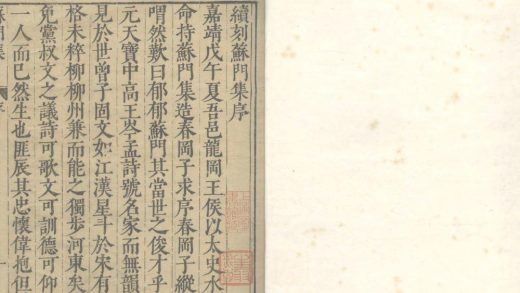 續刻蘇門集序
嘉靖戊午夏吾邑龍岡王侯以太史水
命持蘇門集造春岡子求序春岡子縱
喟然歎曰郁郁蘇門其當世之俊才乎
元天寶中高王岑孟詩號名家而無韻
見於世曾子固文如江漢星斗於宋有
格未粹柳柳州兼而能之獨步河東矣
免黨叔文之議詩可歌文可訓德可仰
一人而已然生也匪辰其忠懷偉抱但
序